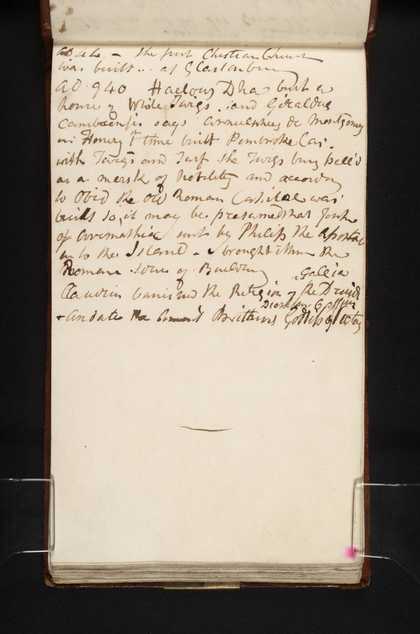 AD 64 – The first Christian Church
was built .. at Glastonbury
AD. 940 Howous Dha built a
house of White Twigs. and Giraldus
Cambrensis says Arnulphus de Montgomery
in Henry 1st time built Pembroke Cas.
with Twigs and Turf the Twigs being peel'd
as a mark of Nobility and according
to Ovid the old Roman Capitol was
built so, it may be presumed that Joseph
of Arimathia sent by Philip the Apostle
in to the Island – brought them the
Roman – love of Building Gallia
Claudius banished the Religion of the Druids
Andate the Britains Goddess of Victory